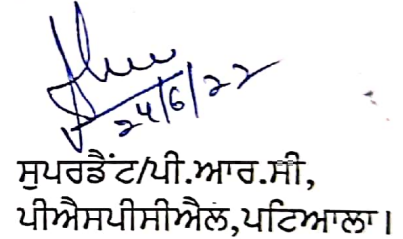 24/6/22
ਸੁਪਰਡੈਂਟ/ਪੀ.ਆਰ.ਸੀ,
ਪੀਐਸਪੀਸੀਐਲ,ਪਟਿਆਲਾ।